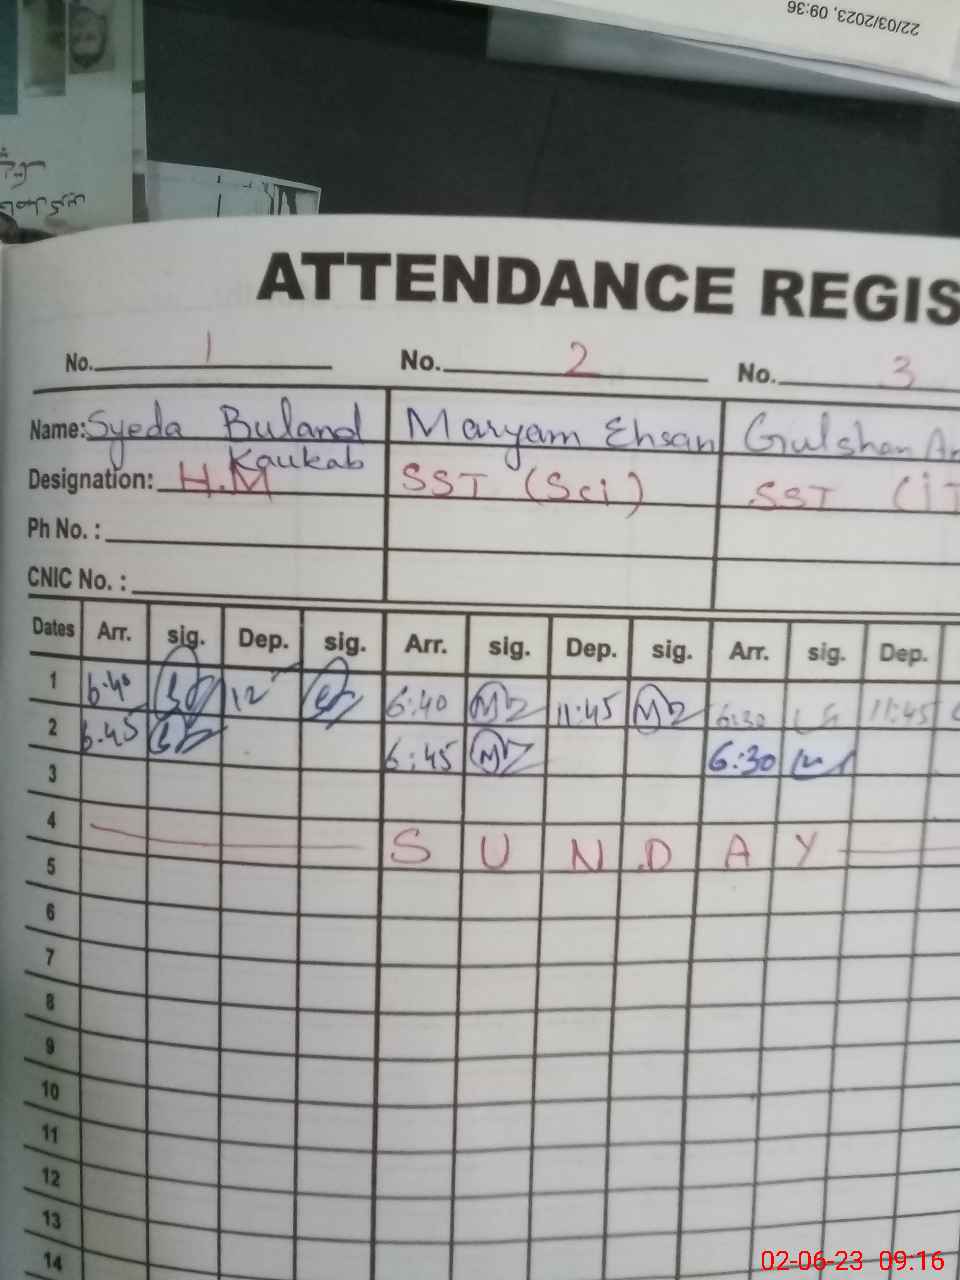 22/03/2023, 09:36
ATTENDANCE REGIS
No. 1 No. 2 No. 3
Name: Syeda Buland Kaukab Maryam Ehsan Gulshan Ar
Designation: H.M SST (Sci) SST (IT
Ph No. :
CNIC No. :
Dates Arr. sig. Dep. sig. Arr. sig. Dep. sig. Arr. sig. Dep.
1 6:40 12 6:40 11:45 6:30 11:45
2 6:45 6:45 6:30
3
4 SUNDAY
5
6
7
8
9
10
11
12
13
14
02-06-23 09:16